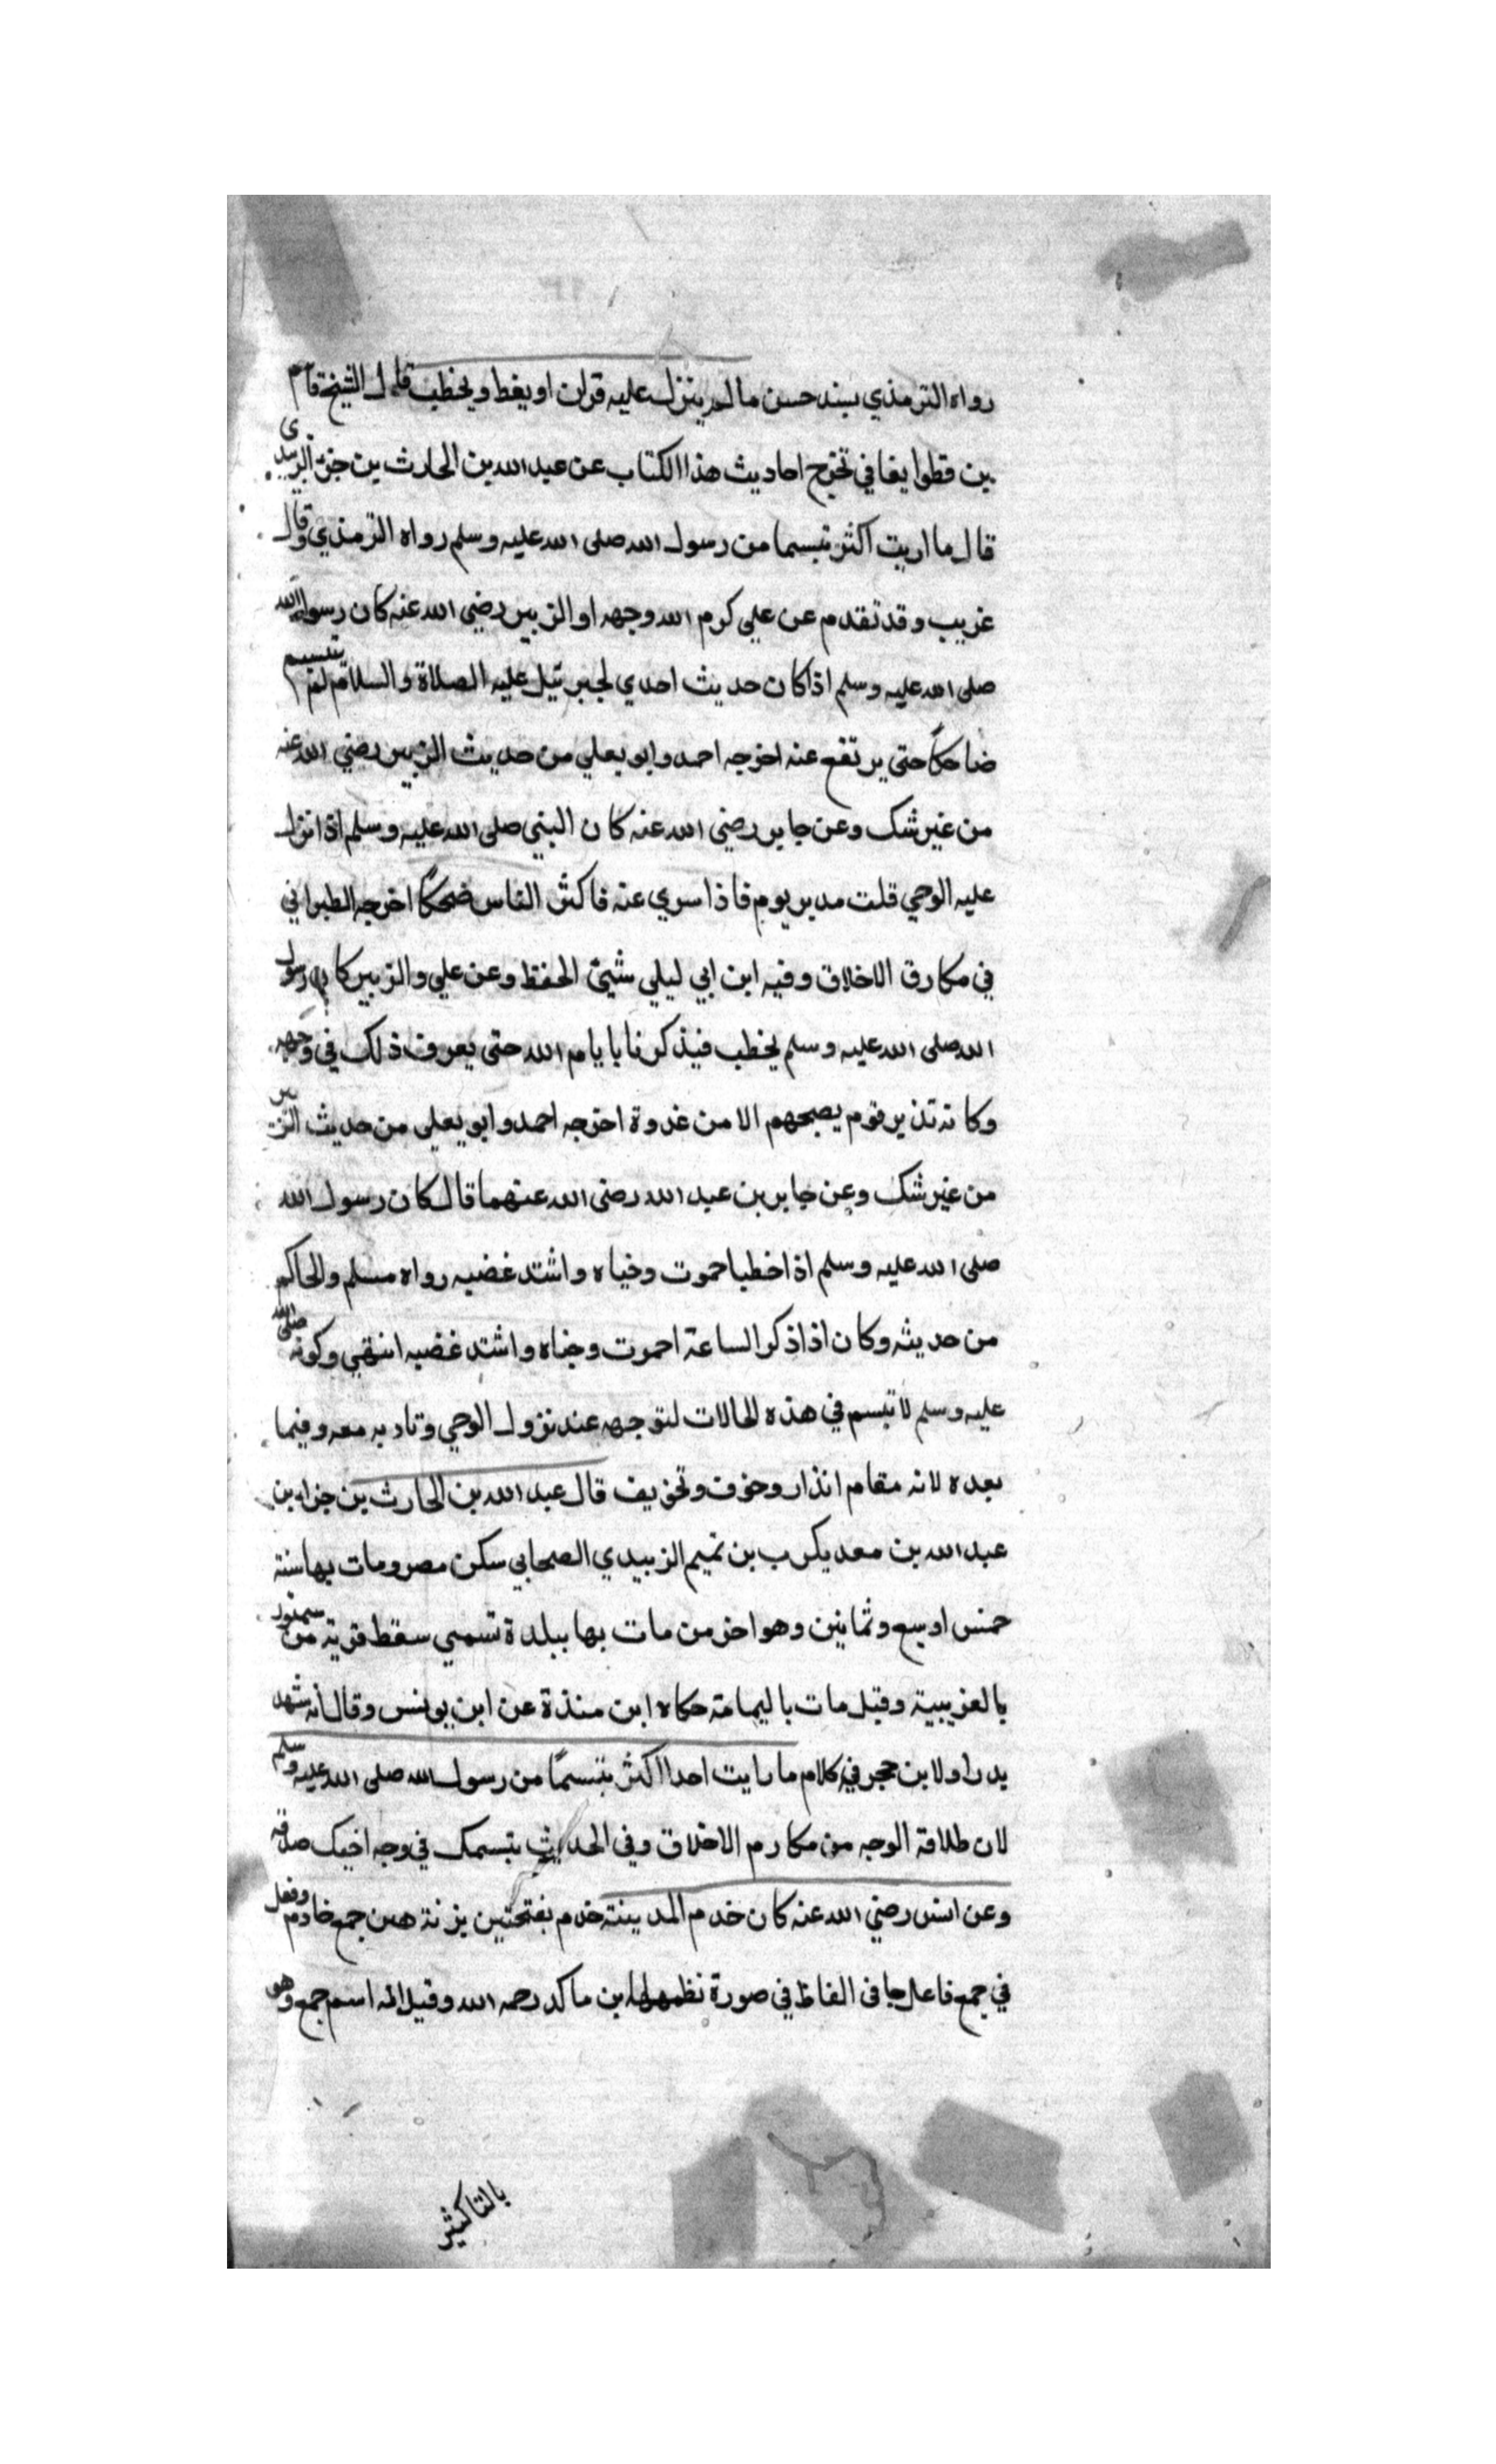 رواه الترمذي بسند حسن ما لم ينزل عليه قران او يغط ويخطب قال الشيخ قاسم
بن قطلوا بغا في تخرج احاديث هذا الكتاب عن عبد الله بن الحارث بن جزء الزبيدى
قال ما اريت اكثر تبسما من رسول الله صلى الله عليه وسلم رواه الترمذي وقال
غريب وقد تقدم عن علي كرم الله وجهه او الزبير رضي الله عنه كان رسول الله
صلى الله عليه وسلم اذا كان حديث احدي لجبرئيل عليه الصلاة والسلام لم يتبسم
ضاحكاً حتى يرتفع عنه اخرجه احمد وابو يعلي من حديث الزبير رضي الله عنه
من غير شك وعن جابر رضي الله عنه كان النبي صلى الله عليه وسلم اذا نزل
عليه الوحي قلت مدير يوم فاذا سري عنه فاكثر الناس ضحكاً اخرجه الطبراني
في مكارق الاخلاق وفيه ابن ابي ليلي شيئ الحفظ وعن علي والزبير كان رسول
الله صلى الله عليه وسلم يخطب فيذكرنا بايام الله حتى يعرف ذلك في وجهه
وكانه تذير قوم يصبحهم الا من غدوة اخرجه احمد وابو يعلي من حديث الزبير
من غير شك وعن جابر بن عبد الله رضي الله عنهما قال كان رسول الله
صلى الله عليه وسلم اذا خطبا حموت وخياه واشتد غضبه رواه مسلم والحاكم
من حديثه وكان اذا ذكر الساعة احموت وجناه واشتد غضبه انتهي وكونه صلى الله
عليه وسلم لا تبسم في هذه الحالات لتوجهه عند نزول الوحي وتادبه معه وفيما
بعده لانه مقام انذار وخوف وتخويف قال عبد الله بن الحارث بن جزاء بن
عبد الله بن معد يكرب بن تميم الزبيدي الصحابي سكن مصر ومات بها سنة
خمس او سبع وثمانين وهو اخر من مات بها ببلدة تسمي سقط قرية من سمنود
بالغريبية وقيل مات باليمامة حكاه ابن منذة عن ابن يونس وقال انه شهد
بدرا ولابن حجر فيه كلام ما رايت احدا اكثر تبسماً من رسول الله صلى الله عليه وسلم
لان طلاقة الوجه من مكارم الاخلاق وفي الحديث تبسمك في وجه اخيك صدقة
وعن انس رضي الله عنه كان خدم المدينة خدم بفتحتين بزنة جمع خادم وفعل
في جمع فاعل جا في الفاظ في صورة نظمها ابن مالك رحمه الله وقيل انه اسم جمع وهو
بالتا كثير